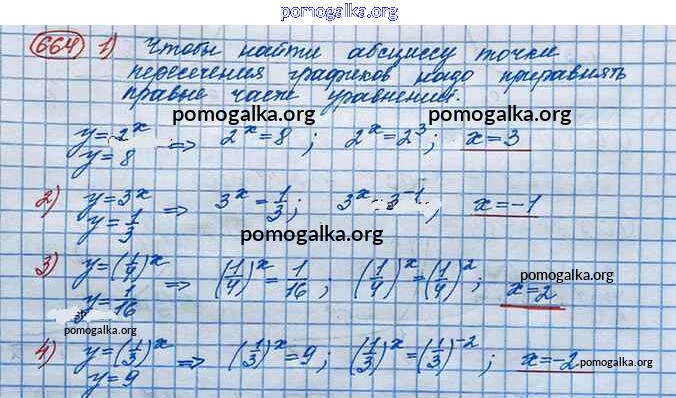 pomogalka.org
664 1) Чтобы найти абсциссу точки
пересечения графиков надо приравнять
правые части уравнений.
pomogalka.org
y=2^x
y=8 => 2^x=8; 2^x=2^3; x=3
pomogalka.org
2) y=3^x
y=1/3 => 3^x=1/3; 3^x=3^-1; x=-1
pomogalka.org
3) y=(1/4)^x
y=1/16 => (1/4)^x=1/16; (1/4)^x=(1/4)^2; x=2
pomogalka.org
pomogalka.org
4) y=(1/3)^x
y=9 => (1/3)^x=9; (1/3)^x=(1/3)^-2; x=-2
pomogalka.org
pomogalka.org